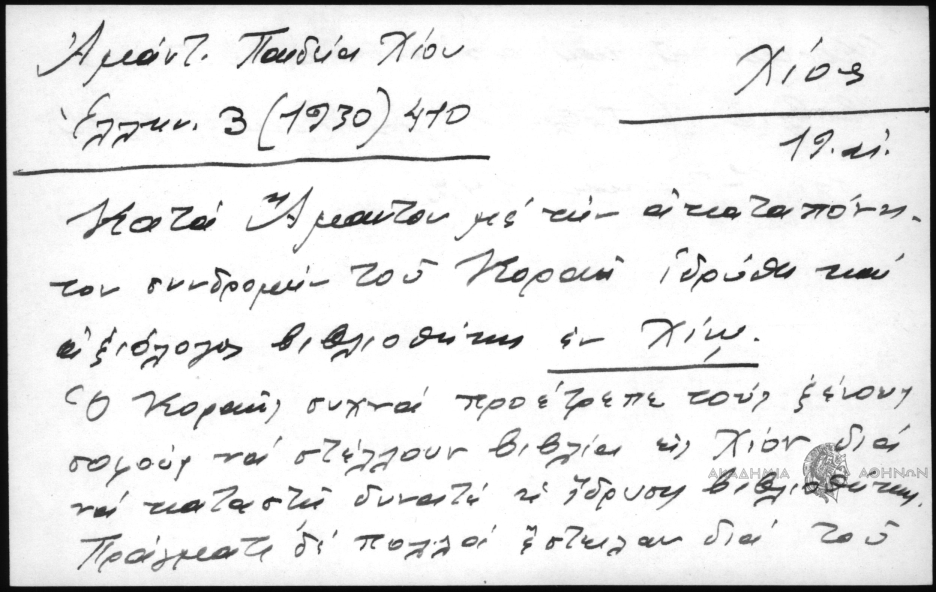 Ἀμάντ. Παιδεία Χίου
Χίος
Ἑλλην. 3 (1930) 410
19. αἰ.
Κατά Ἄμαντον μέ τήν ἀκαταπόνη-
τον συνδρομήν τοῦ Κοραῆ ἱδρύθη καί
ἀξιόλογος βιβλιοθήκη ἐν Χίῳ.
Ὁ Κοραῆς συχνά προέτρεπε τούς ξένους
σοφούς νά στέλλουν βιβλία εἰς Χίον διά
ΑΚΑΔΗΜΙΑ ΑΘΗΝΩΝ
νά καταστῆ δυνατή ἡ ἵδρυσις βιβλιοθήκης.
Πράγματι δέ πολλοί ἔστειλαν διά τοῦ